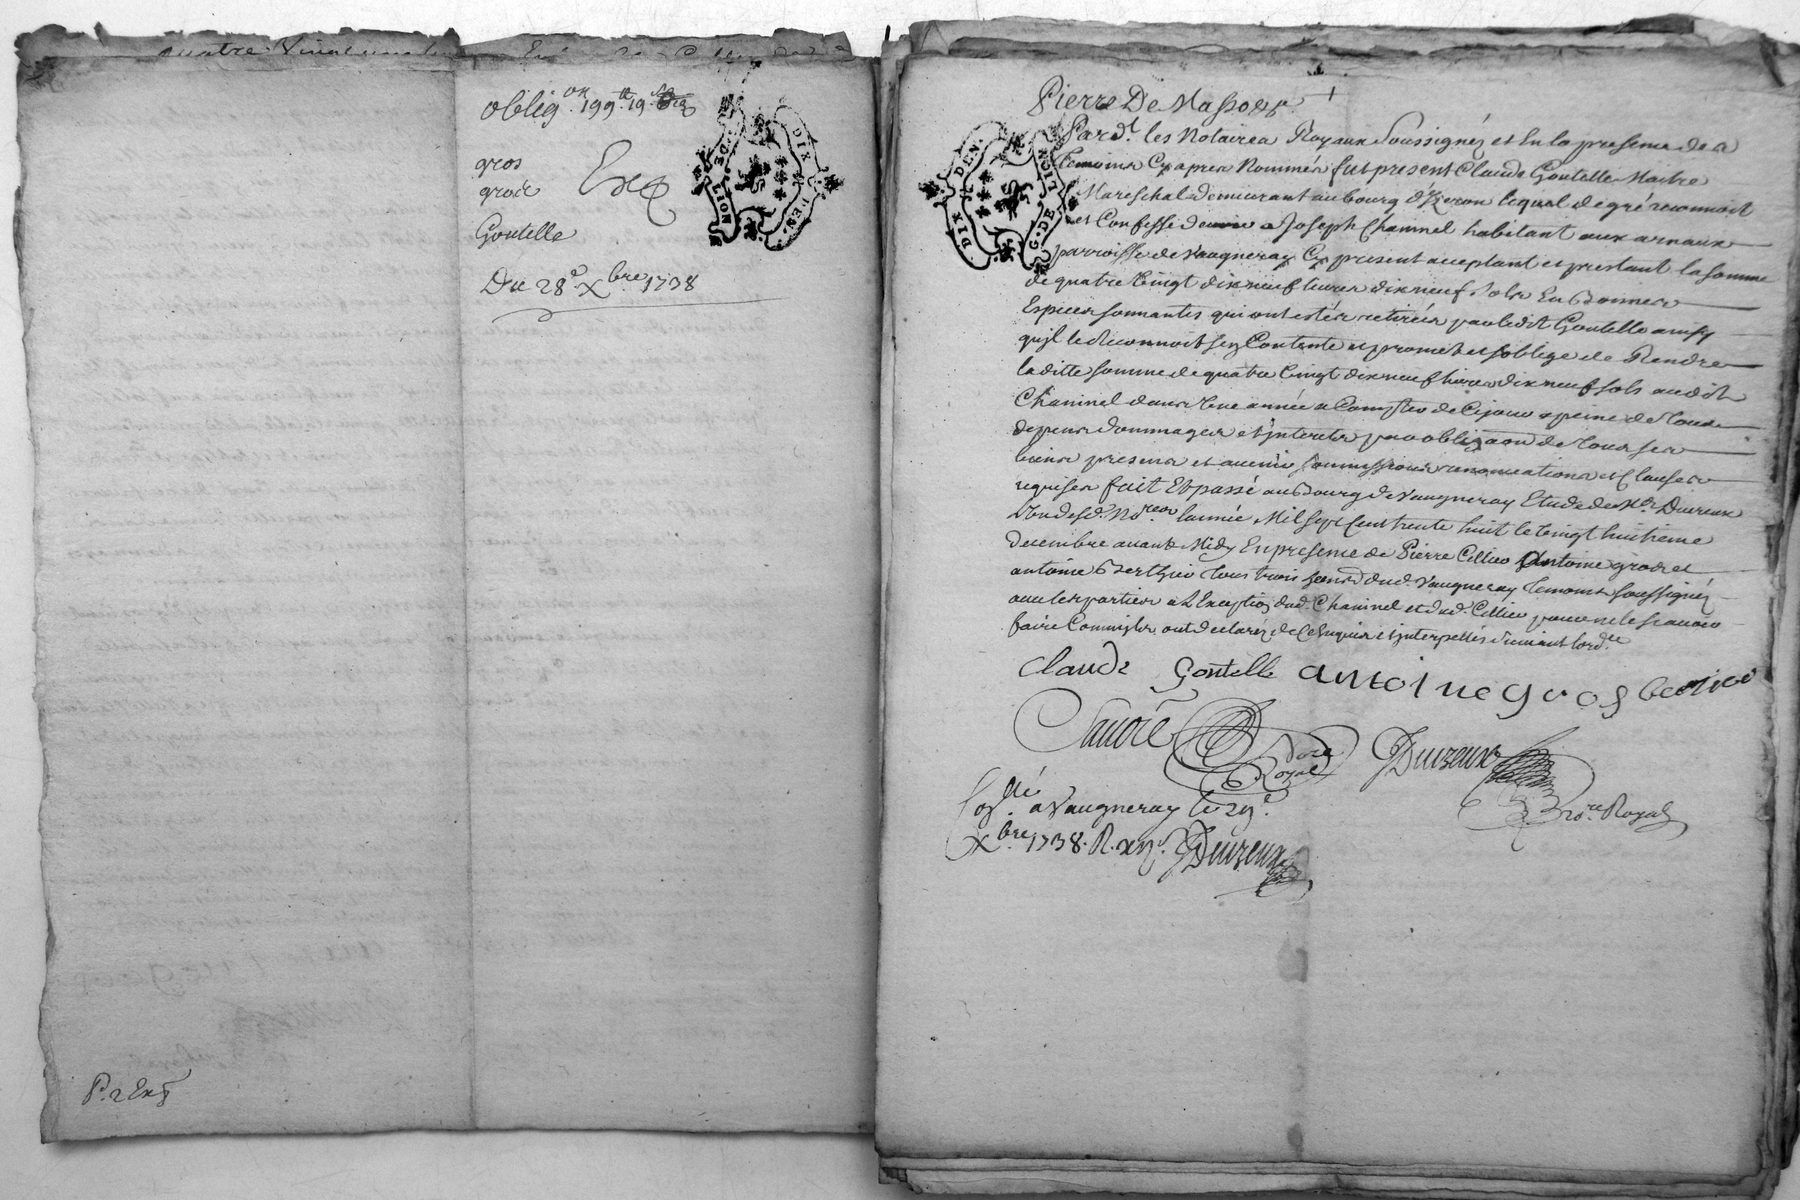 obligon 199tt 19s
gros
groie
Goutelle
Du 28e Xbre 1738
DIX DEN.
G. DE LION
P. 2 Ex
DIX DEN.
G. DE LION
Pierre De Masso
Pard.t les Notaires Royaux Soussignéz et En la presence des
temoins Cy apres Nommés fut present Claude Goutelle Maitre
Mareschal demeurant au bourg d'Izeron lequel de gré reconnoit
et Confesse devoir a Joseph Chaninel habitant aux arnaux
parroisse de Vaugneray Cy present acceptant et prestant la somme
de quatre Vingt dix neuf livres dix neuf sols En Bonnes
Especes sonnantes qui ont estés retirées par ledit Goutelle ainsy
quil le Reconnoit sen Contente et promet et soblige de Rendre
la ditte somme de quatre Vingt dix neuf livres dix neuf sols audit
Chaninel dans Une année a Compter de Cejour a peine de tous
depens dommages et interets par obligaon de tous ses
biens presens et avenir soumissions renonciations et Clauses
requises fait Et passé au Bourg de Vaugneray Etude de Me Duvieux
L'un desd. Nores lannée Mil sept Cent trente huit le Vingt huitieme
decembre avant Midy En presence de Pierre Cellier Antoine gros et
antoine Berthier tous trois dud. Vaugneray temoins soussignéz
avec les parties a L'Exception dud. Chaninel et dud. Cellier pour ne le scavoir
faire Comm'ils ont declarés de Ce Enquis et interpellés suivant lord.ce
Claude Goutelle antoine gros berthier
Nore Royal
Duvieux
Nore Royal
Conllé a Vaugneray le 29e
Xbre 1738. R. Duvieux